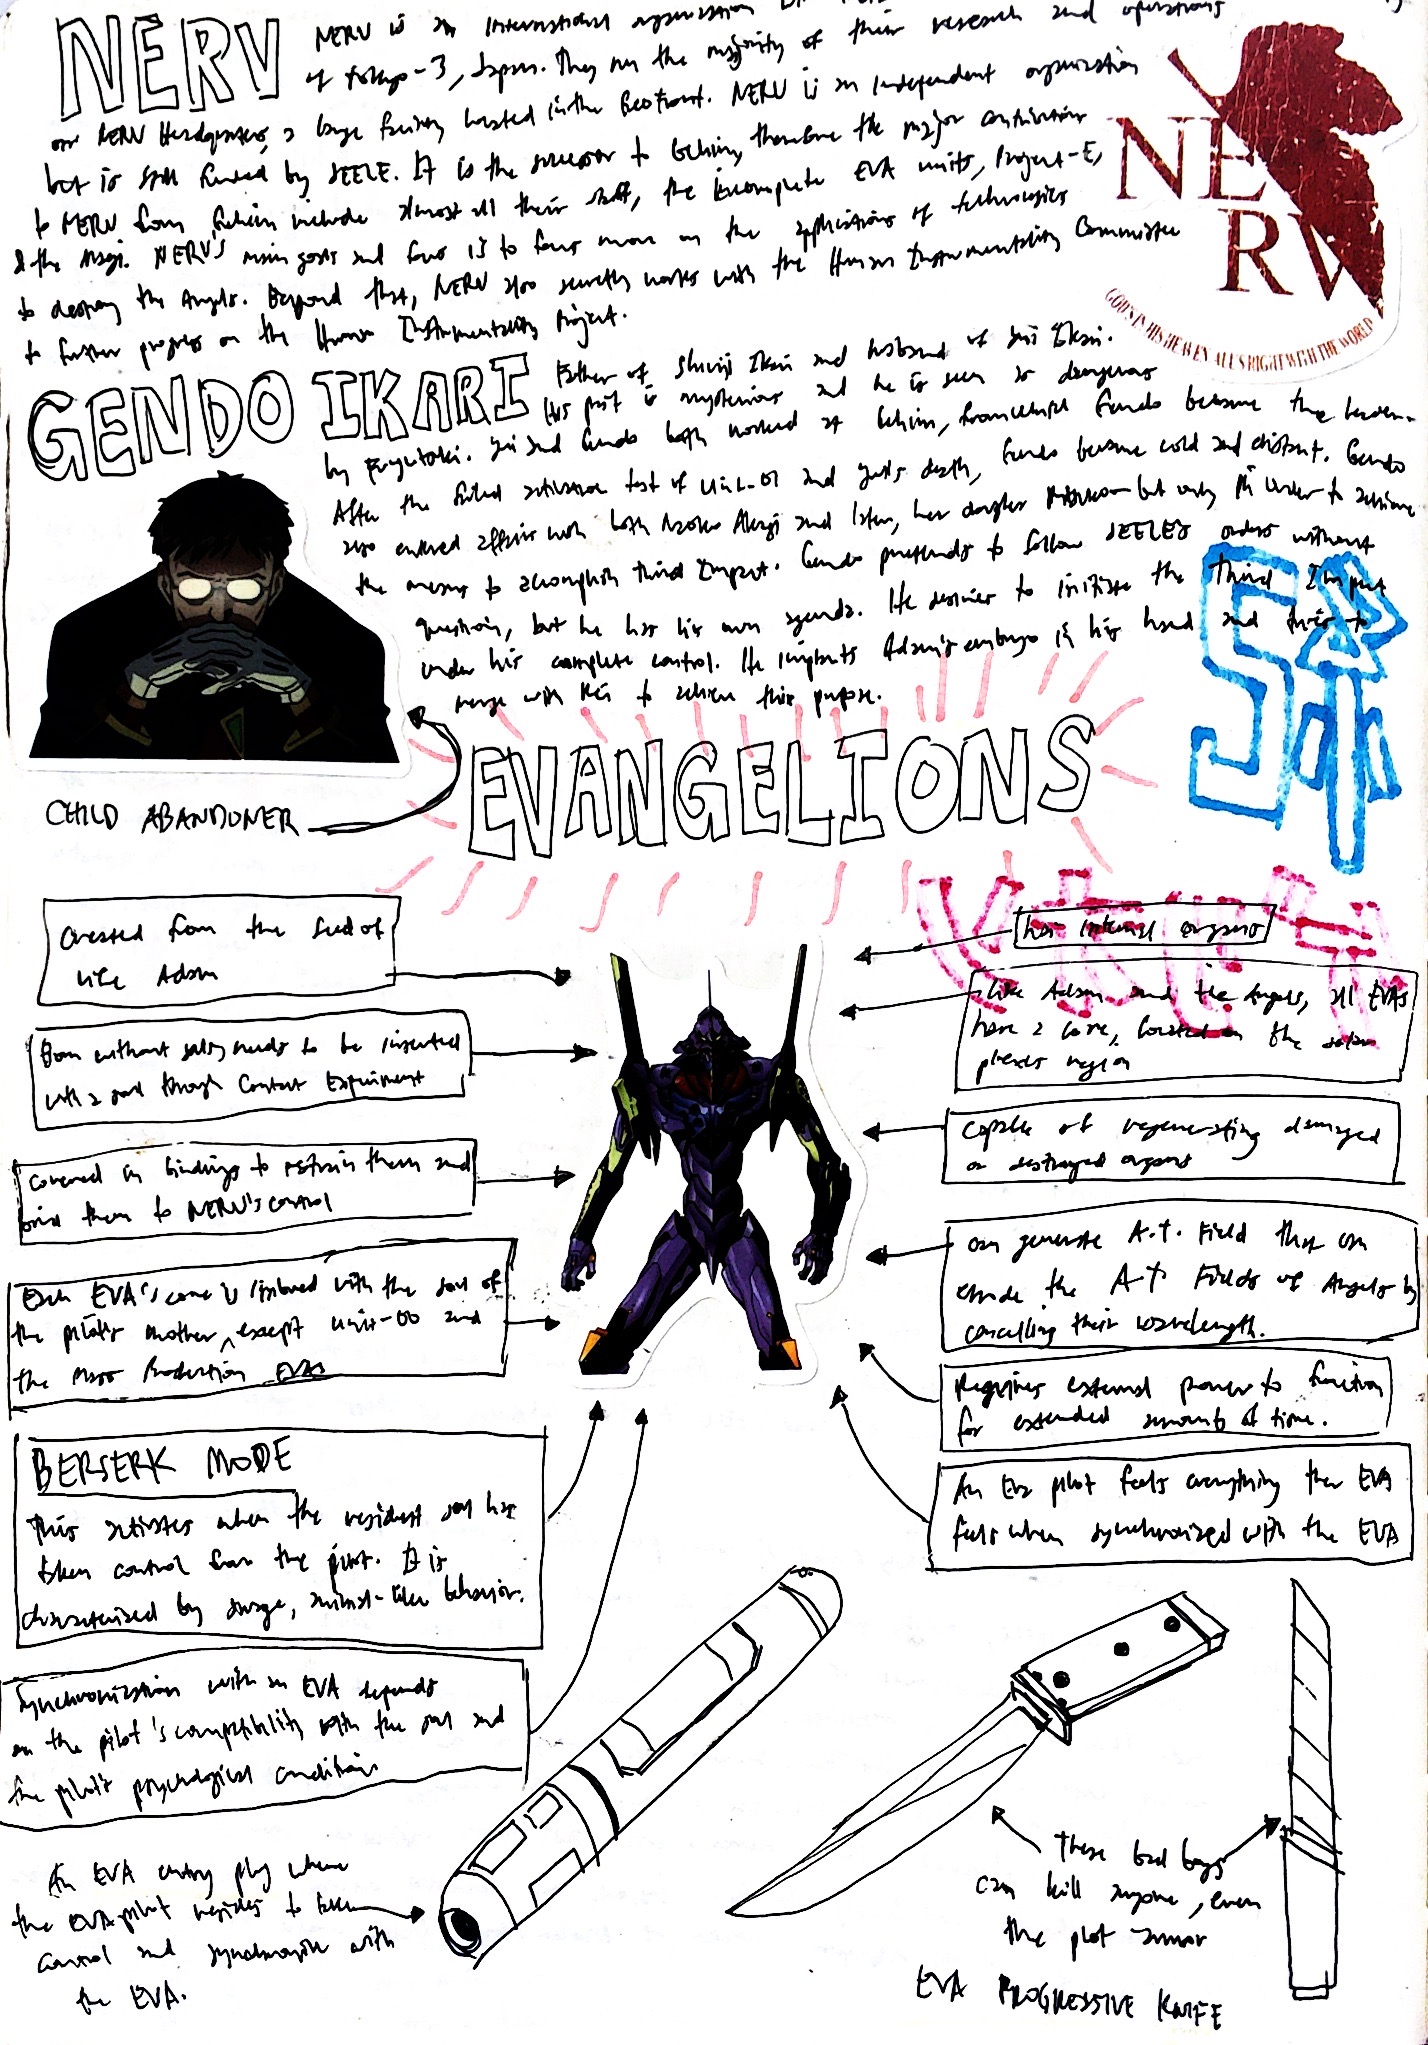 NERV
NERV is an International organization
of Tokyo-3, Japan. They run the majority of their research and operations
on NERV Headquarters, a large facility located in the Geofront. NERV is an independent organization
but is still funded by SEELE. It is the successor to Gehirn, therefore the major contributions
to NERV from Gehirn include almost all their staff, the incomplete EVA units, Project-E,
& the Magi. NERV's main goals and focus is to focus more on the applications of technologies
to destroy the Angels. Beyond that, NERV also secretly works with the Human Instrumentality Committee
to further progress on the Human Instrumentality Project.
NERV
GOD'S IN HIS HEAVEN. ALL'S RIGHT WITH THE WORLD
GENDO IKARI
Father of Shinji Ikari and husband of Yui Ikari.
His past is mysterious and he is seen as dangerous
by Fuyutsuki. Yui and Gendo both worked at Gehirn, Gendo became the leader.
After the failed activation test of Unit-01 and Yui's death, Gendo became cold and distant. Gendo
also entered affairs with both Naoko Akagi and later, her daughter but only in order to achieve
the means to accomplish Third Impact. Gendo pretends to follow SEELE's orders without
question, but he has his own agenda. He desires to initiate the Third Impact
under his complete control. He implants Adam's embryo in his hand and tries to
merge with Rei to achieve this purpose.
CHILD ABANDONER
EVANGELIONS
Created from the
like Adam
Born without needs to be inserted
with a soul through Contact Experiment
Covered in bindings to restrain them and
bind them to NERV's control
Each EVA's core is imbued with the soul of
the pilot's mother, except Unit-00 and
the Mass Production EVAs
BERSERK MODE
This activates when the resident soul has
taken control from the pilot. It is
characterized by savage, animal-like behavior.
Synchronization with an EVA depends
on the pilot's compatibility with the soul and
the pilot's psychological conditions
An EVA entry plug where
the EVA pilot resides to take
control and synchronize with
the EVA.
has internal organs
like Adam and the Angels, all EVAs
have a core, located on the solar
plexus region
Capable of regenerating damaged
or destroyed organs
can generate A.T. Field that can
erode the A.T. Fields of Angels by
cancelling their wavelength.
Requires external power to function
for extended amounts of time.
An Eva pilot feels everything the EVA
feels when synchronized with the EVA
These bad boys
can kill anyone, even
the plot armor
EVA PROGRESSIVE KNIFE